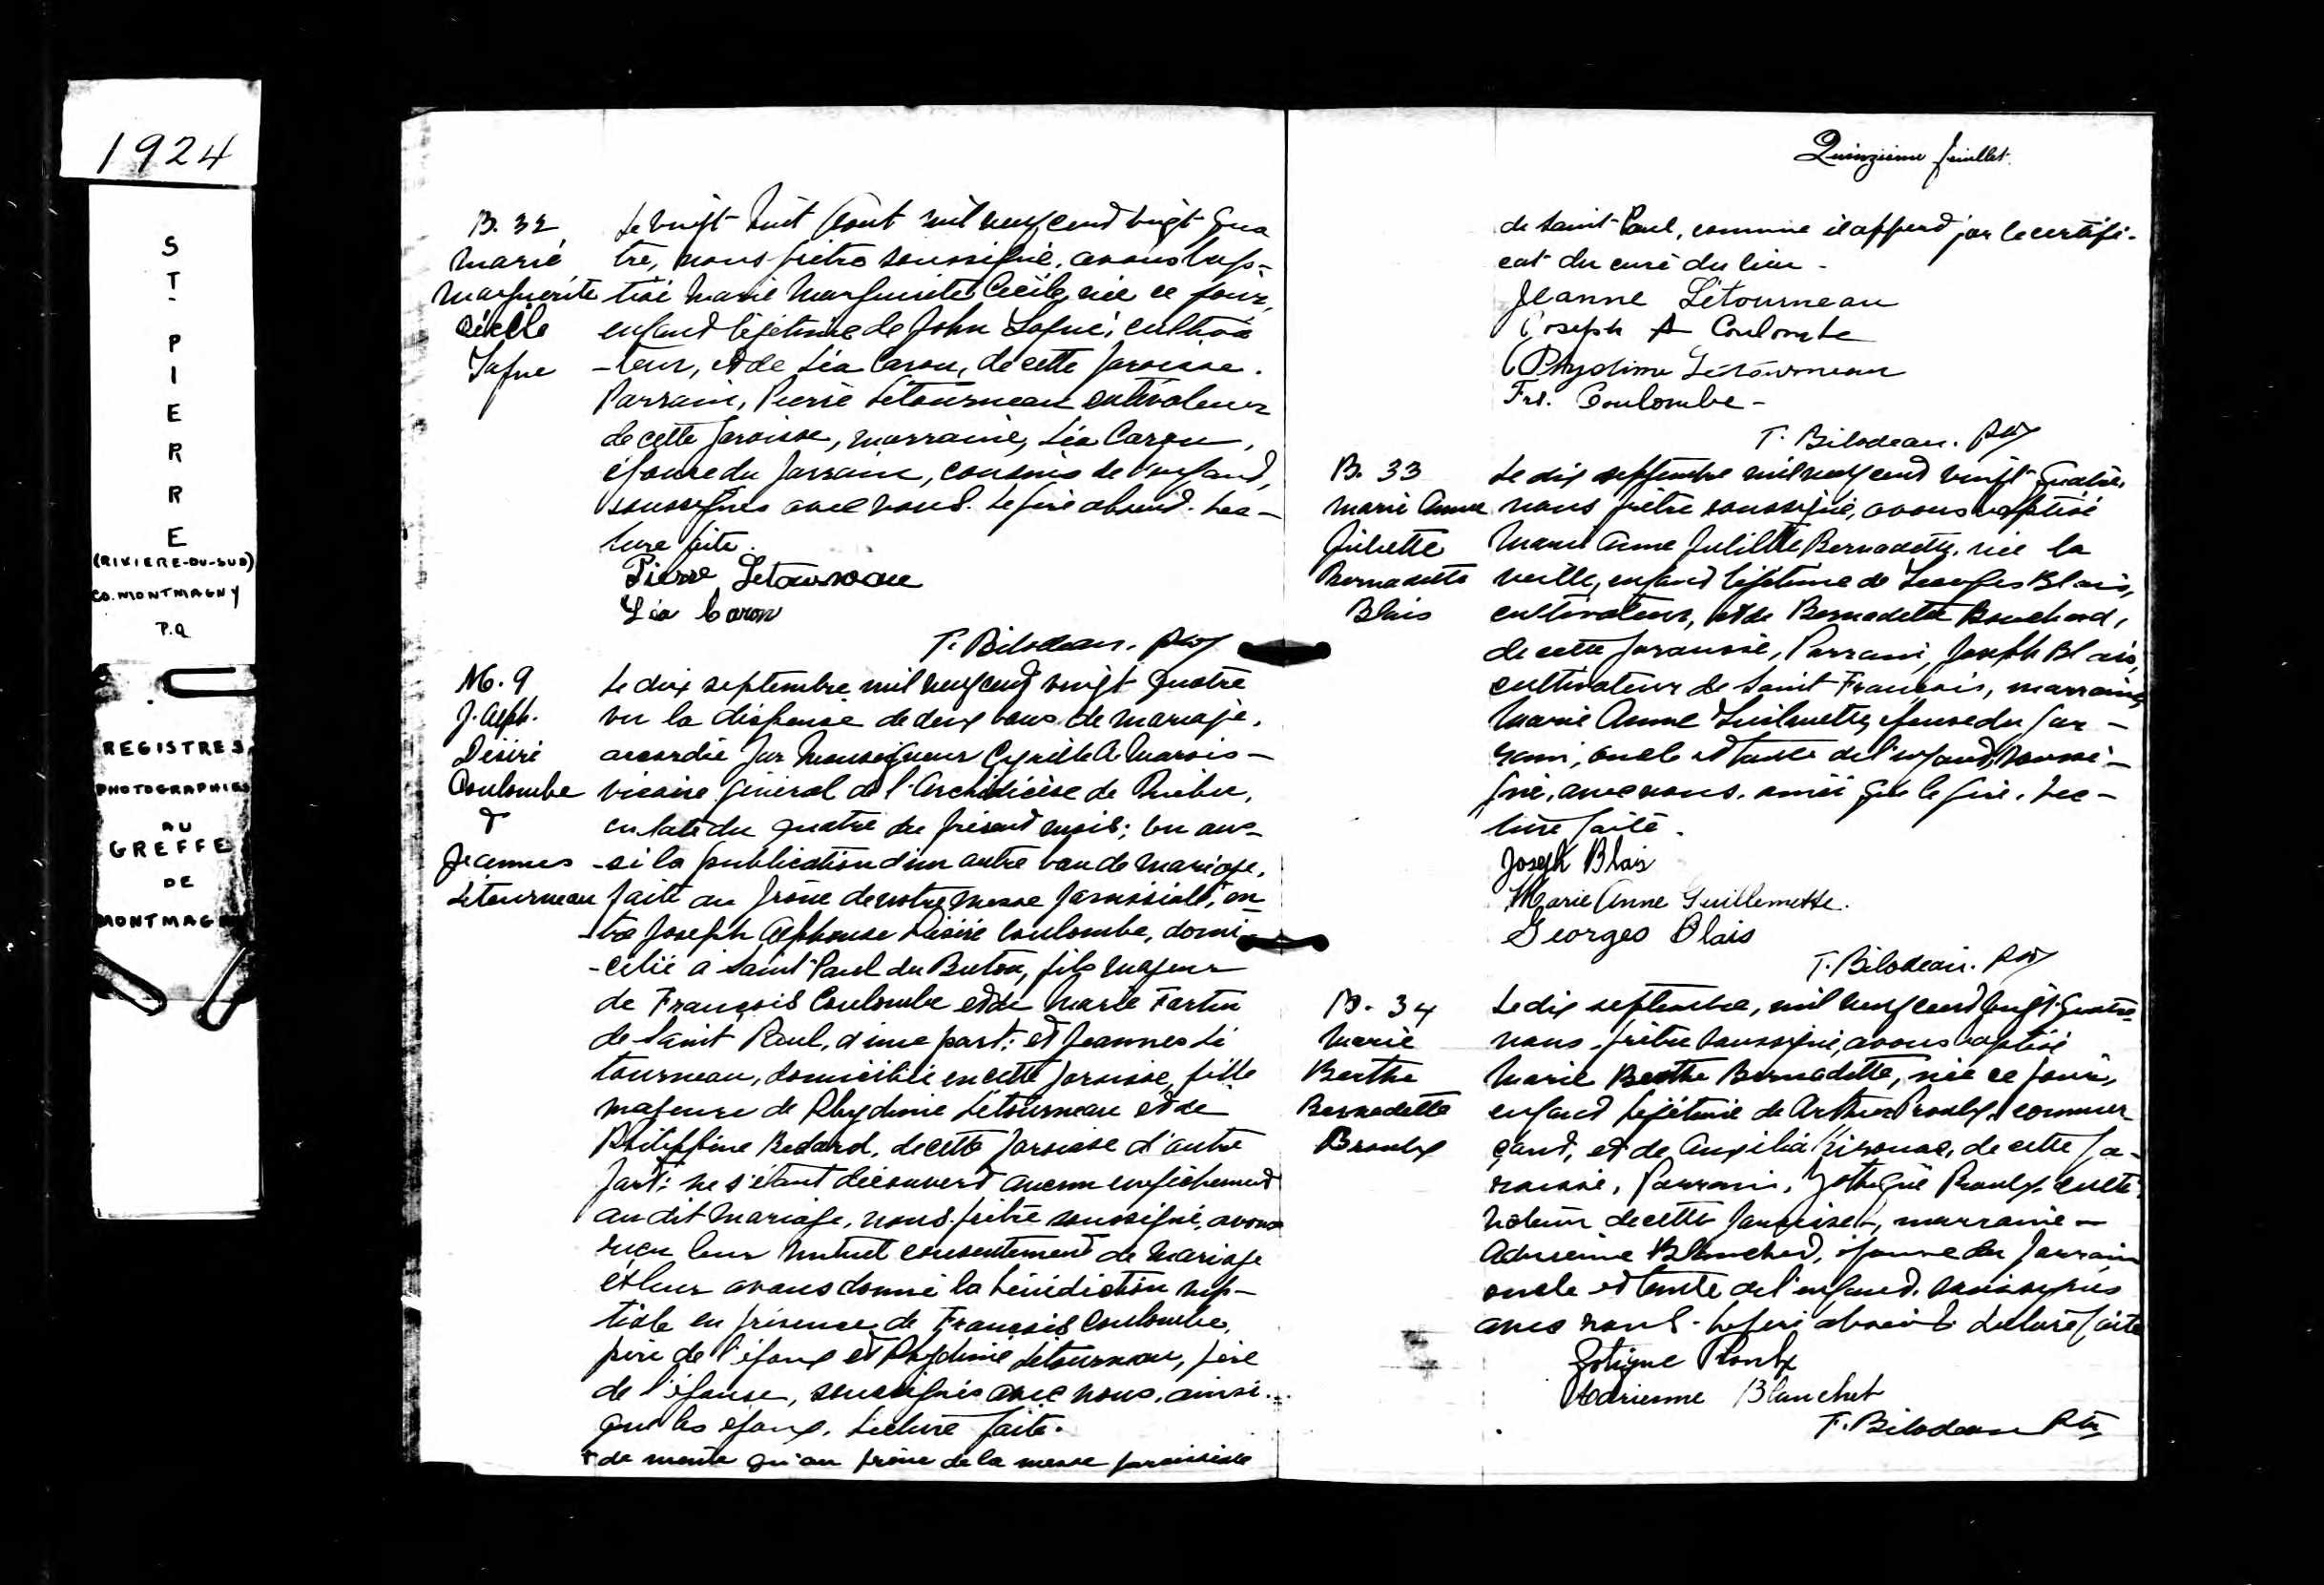 1924
ST-PIERRE
(RIVIERE-DU-SUD)
CO. MONTMAGNY
P.Q.
REGISTRES
PHOTOGRAPHIÉS
AU
GREFFE
DE
MONTMAGNY
B. 32
Marie
Marguerite
Cécile
Le vingt huit Août mil neuf cent vingt qua
tre, nous prêtre soussigné, avons bap-
tisé Marie Marguerite Cécile, née ce jour,
enfant légitime de John cultiva
-teur, et de Léa Caron, de cette paroisse.
Parrain, Pierre Létourneau cultivateur
de cette paroisse, marraine, Léa Caron,
épouse du parrain, cousins de l'enfant,
soussignés avec nous. Le père absent. Lec-
ture faite.
Pierre Letourneau
Léa Caron
T. Bilodeau. ptre
M. 9
J. Alph.
Désiré
Coulombe
&
Jeannes
Létourneau
Le dix septembre mil neuf cent vingt quatre
vu la dispense de deux bans de mariage,
accordée par Monseigneur Cyrille A. Marois-
vicaire général de l'Archidiocèse de Québec,
en date du quatre du présent mois; vu aus-
-si la publication d'un autre ban de mariage,
faite au prône de notre messe paroissiale, en
-tre Joseph Alphonse Désiré Coulombe, domi-
-cilié à Saint-Paul du Buton, fils majeur
de François Coulombe et de Marie Fortin
de Saint Paul, d'une part; et Jeannes Lé
tourneau, domiciliée en cette paroisse, fille
majeure de Phydime Létourneau et de
Philippine Bedard, de cette paroisse d'autre
part; ne s'étant découvert aucun empêchement
au dit mariage, nous prêtre soussigné, avons
reçu leur mutuel consentement de mariage
et leur avons donné la bénédiction nup-
tiale en présence de François Coulombe,
père de l'époux et Phydime Létourneau, père
de l'épouse, soussignés avec nous, ainsi
que les époux. Lecture faite.
+ de même qu'au prône de la messe paroissiale
Quinzième feuillet
de Saint-Paul, comme il appert par le certifi-
cat du curé du lieu-
Jeanne Létourneau
Joseph A Coulombe
Phydime Létourneau
Frs. Coulombe-
T. Bilodeau. ptre
B. 33
Marie Anne
Juliette
Bernadette
Blais
Le dix septembre mil neuf cent vingt quatre,
nous prêtre soussigné, avons baptisé
Marie Anne Juliette Bernadette, née la
veille, enfant légitime de Georges Blais,
cultivateur, et de Bernadette Bouchard,
de cette paroisse, Parrain, Joseph Blais,
cultivateur de Saint-François, marraine,
Marie Anne Guilmette, épouse du par-
rain, oncle et tante de l'enfant, soussi-
gné, avec nous, ainsi que le père. Lec-
ture faite.
Joseph Blais
Marie Anne Guillemette.
Georges Blais
T. Bilodeau. ptre
B. 34
Marie
Berthe
Bernadette
Proulx
Le dix septembre, mil neuf cent vingt-quatre
nous prêtre soussigné, avons baptisé
Marie Berthe Bernadette, née ce jour,
enfant légitime de Arthur Proulx, commer
çant, et de Auxilia de cette pa-
roisse, Parrain, Zothique Proulx culti
vateur de cette paroisse, marraine-
Adrienne Blanchet, épouse du parrain
oncle et tante de l'enfant, soussignés
avec nous. Le père absent. Lecture faite
Zotique Proulx
Adrienne Blanchet
T. Bilodeau Ptre